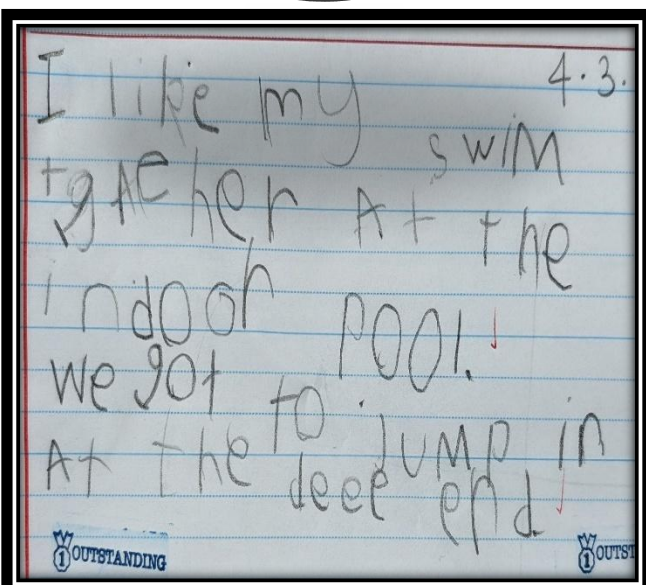 I like my 4.3.
swim
tgAeher At the
indoor pool.
we got to jump in
At the deee end
1 OUTSTANDING
1 OUTST